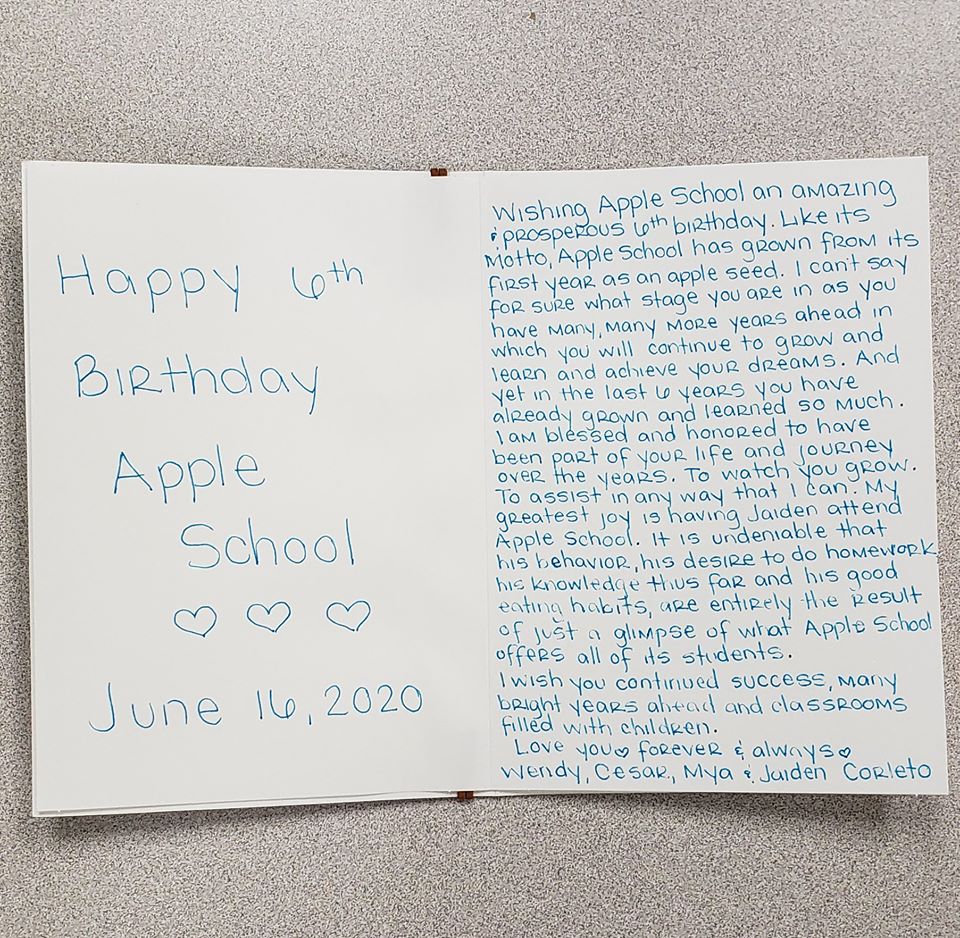 Happy 6th
Birthday
Apple
School
♡ ♡ ♡
June 16, 2020
Wishing Apple School an amazing
& prosperous 6th birthday. Like its
motto, Apple School has grown from its
first year as an apple seed. I can't say
for sure what stage you are in as you
have many, many more years ahead in
which you will continue to grow and
learn and achieve your dreams. And
yet in the last 6 years you have
already grown and learned so much.
I am blessed and honored to have
been part of your life and journey
over the years. To watch you grow.
To assist in any way that I can. My
greatest joy is having Jaiden attend
Apple School. It is undeniable that
his behavior, his desire to do homework,
his knowledge thus far and his good
eating habits, are entirely the result
of just a glimpse of what Apple School
offers all of its students.
I wish you continued success, many
bright years ahead and classrooms
filled with children.
Love you♡ forever & always♡
Wendy, Cesar, Mya & Jaiden Corleto